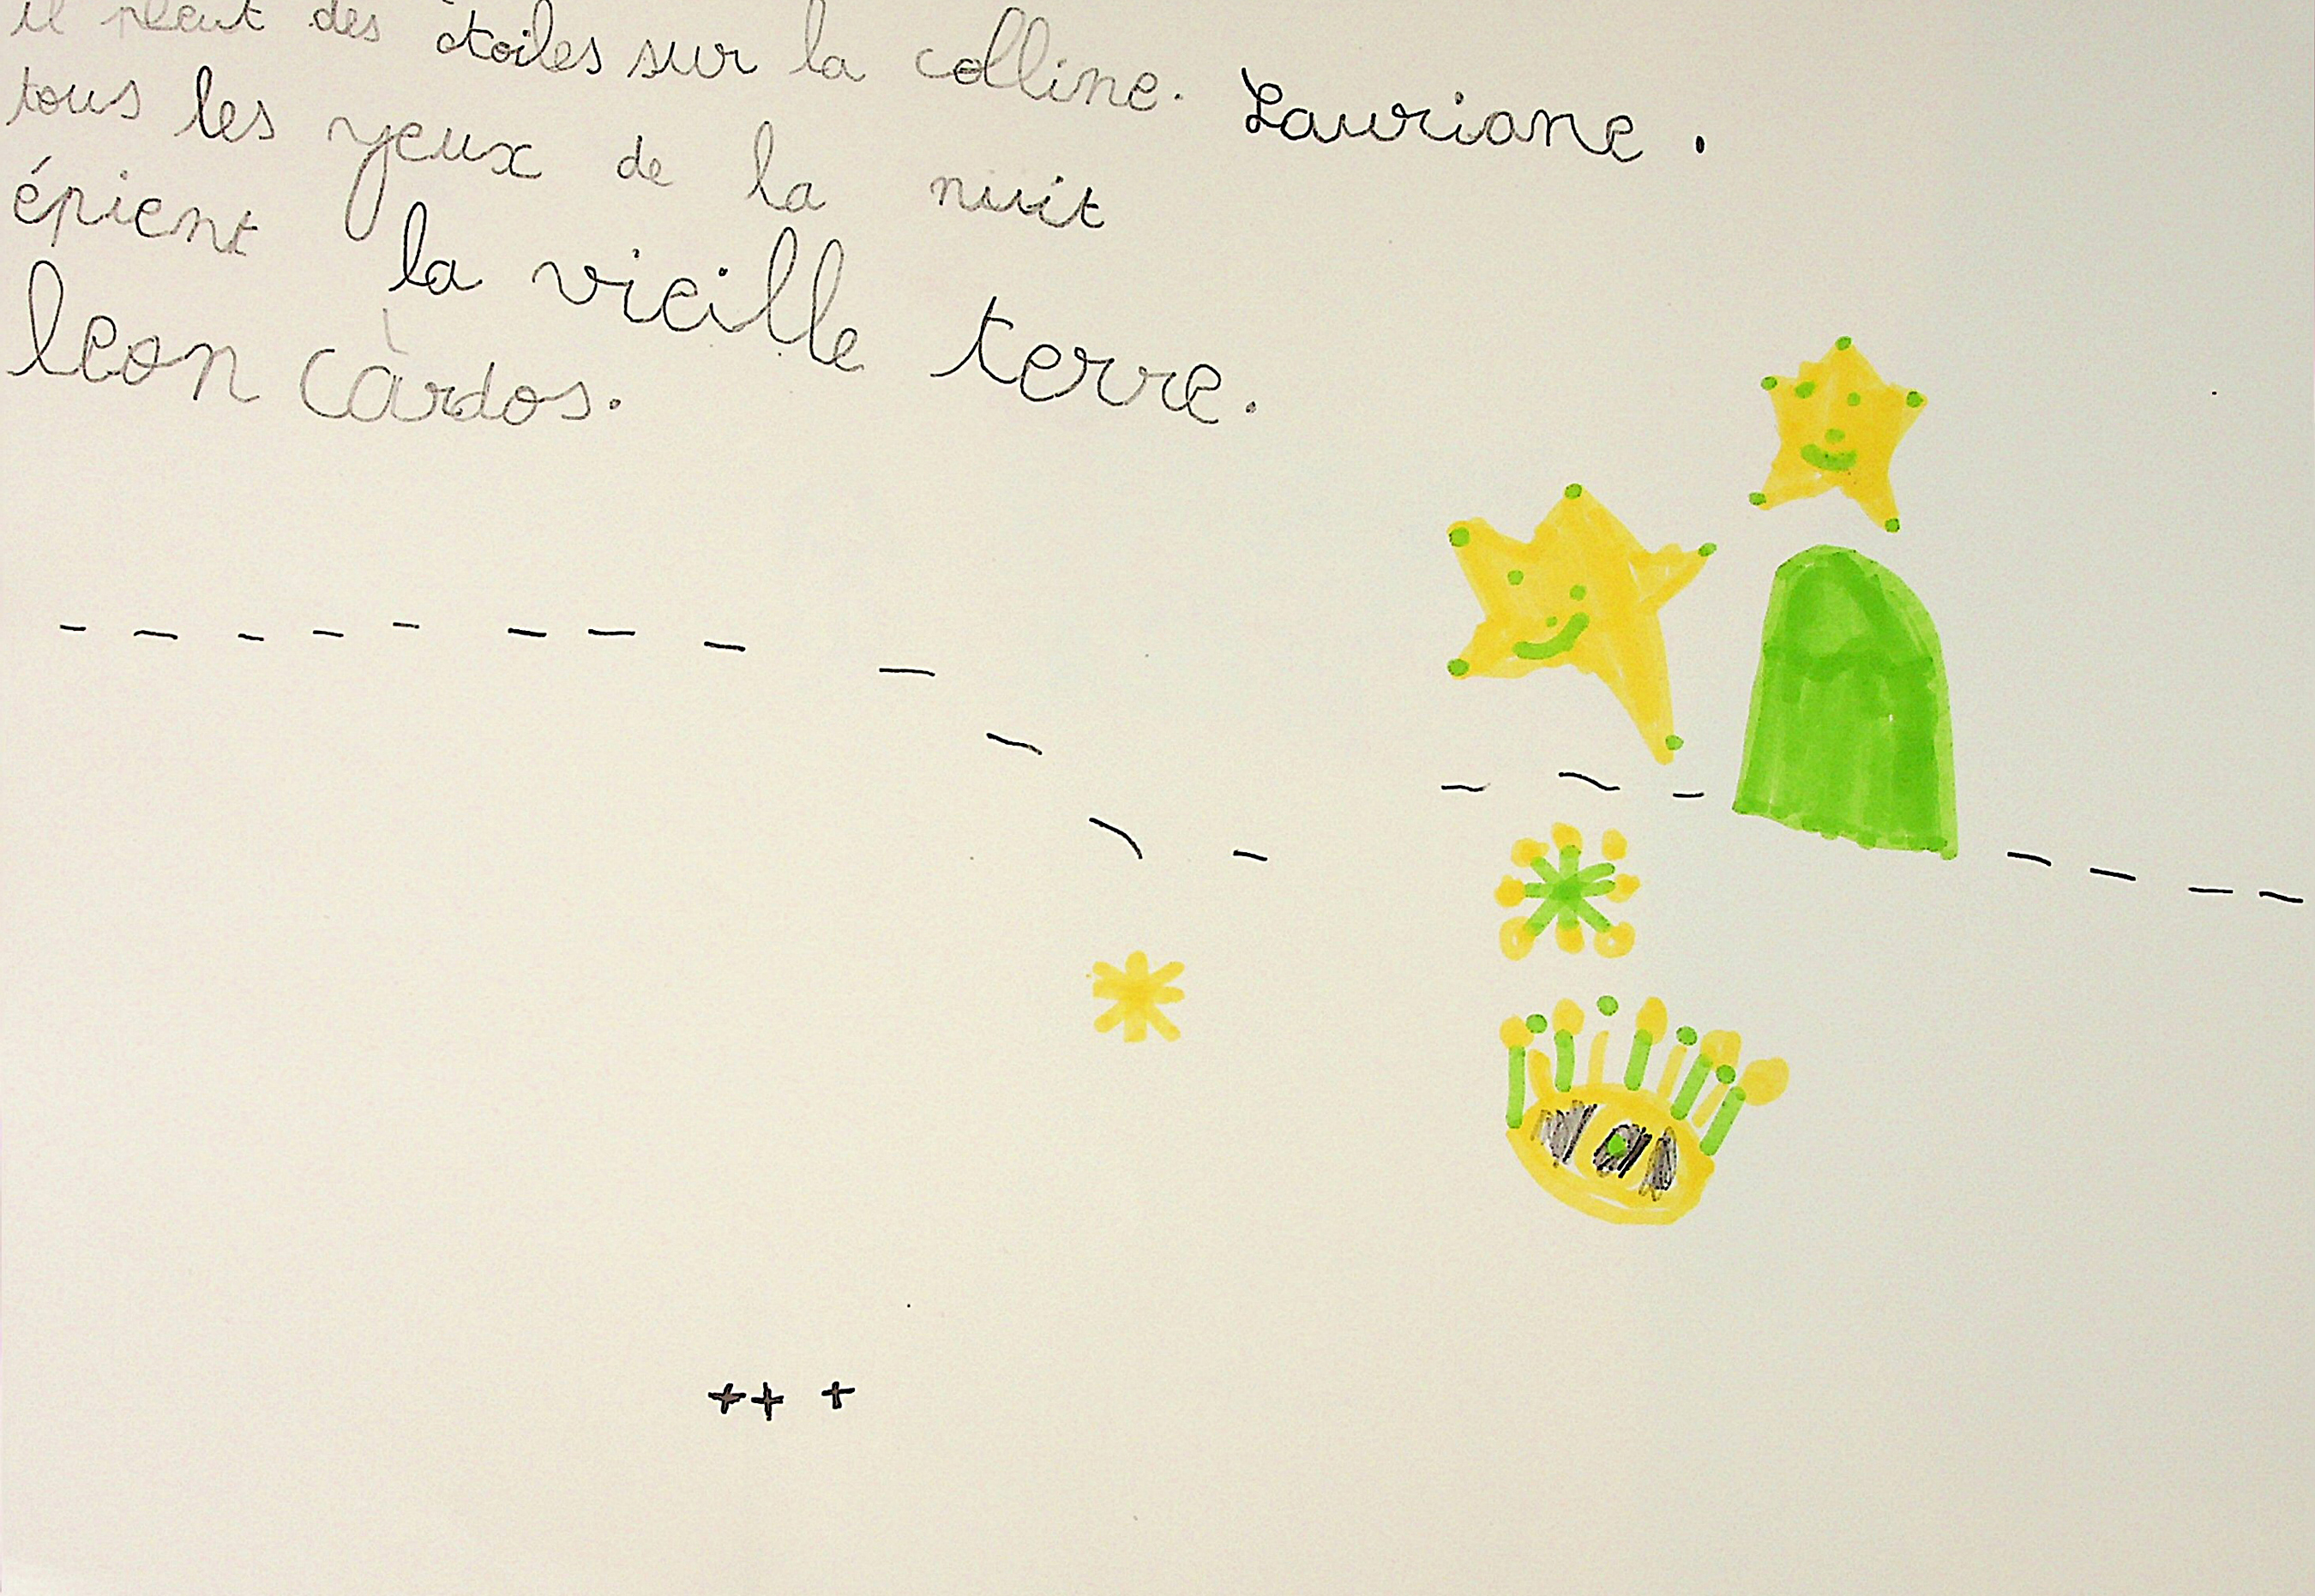 il pleut des étoiles sur la colline.
Lauriane.
tous les yeux de la nuit
épient la vieille terre.
leon càrdos.